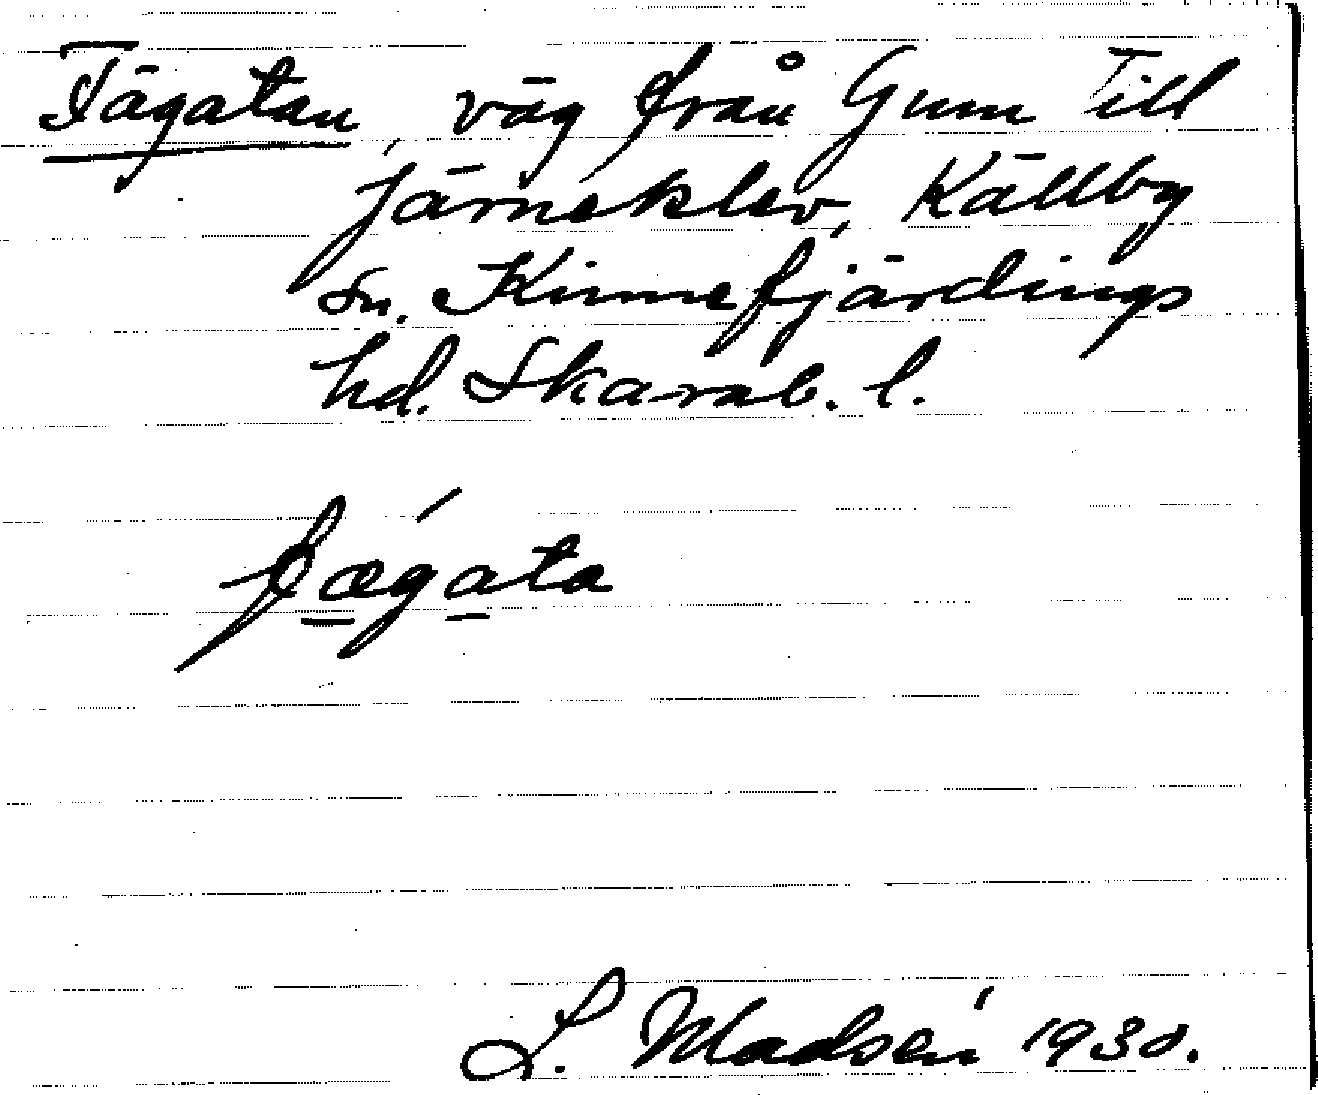 Tägatan, väg från Gum till
Järneklev, Källby
sn. Kinnefjärdings
hd. Skarab. l.
fægáta
L. Madsén 1930.